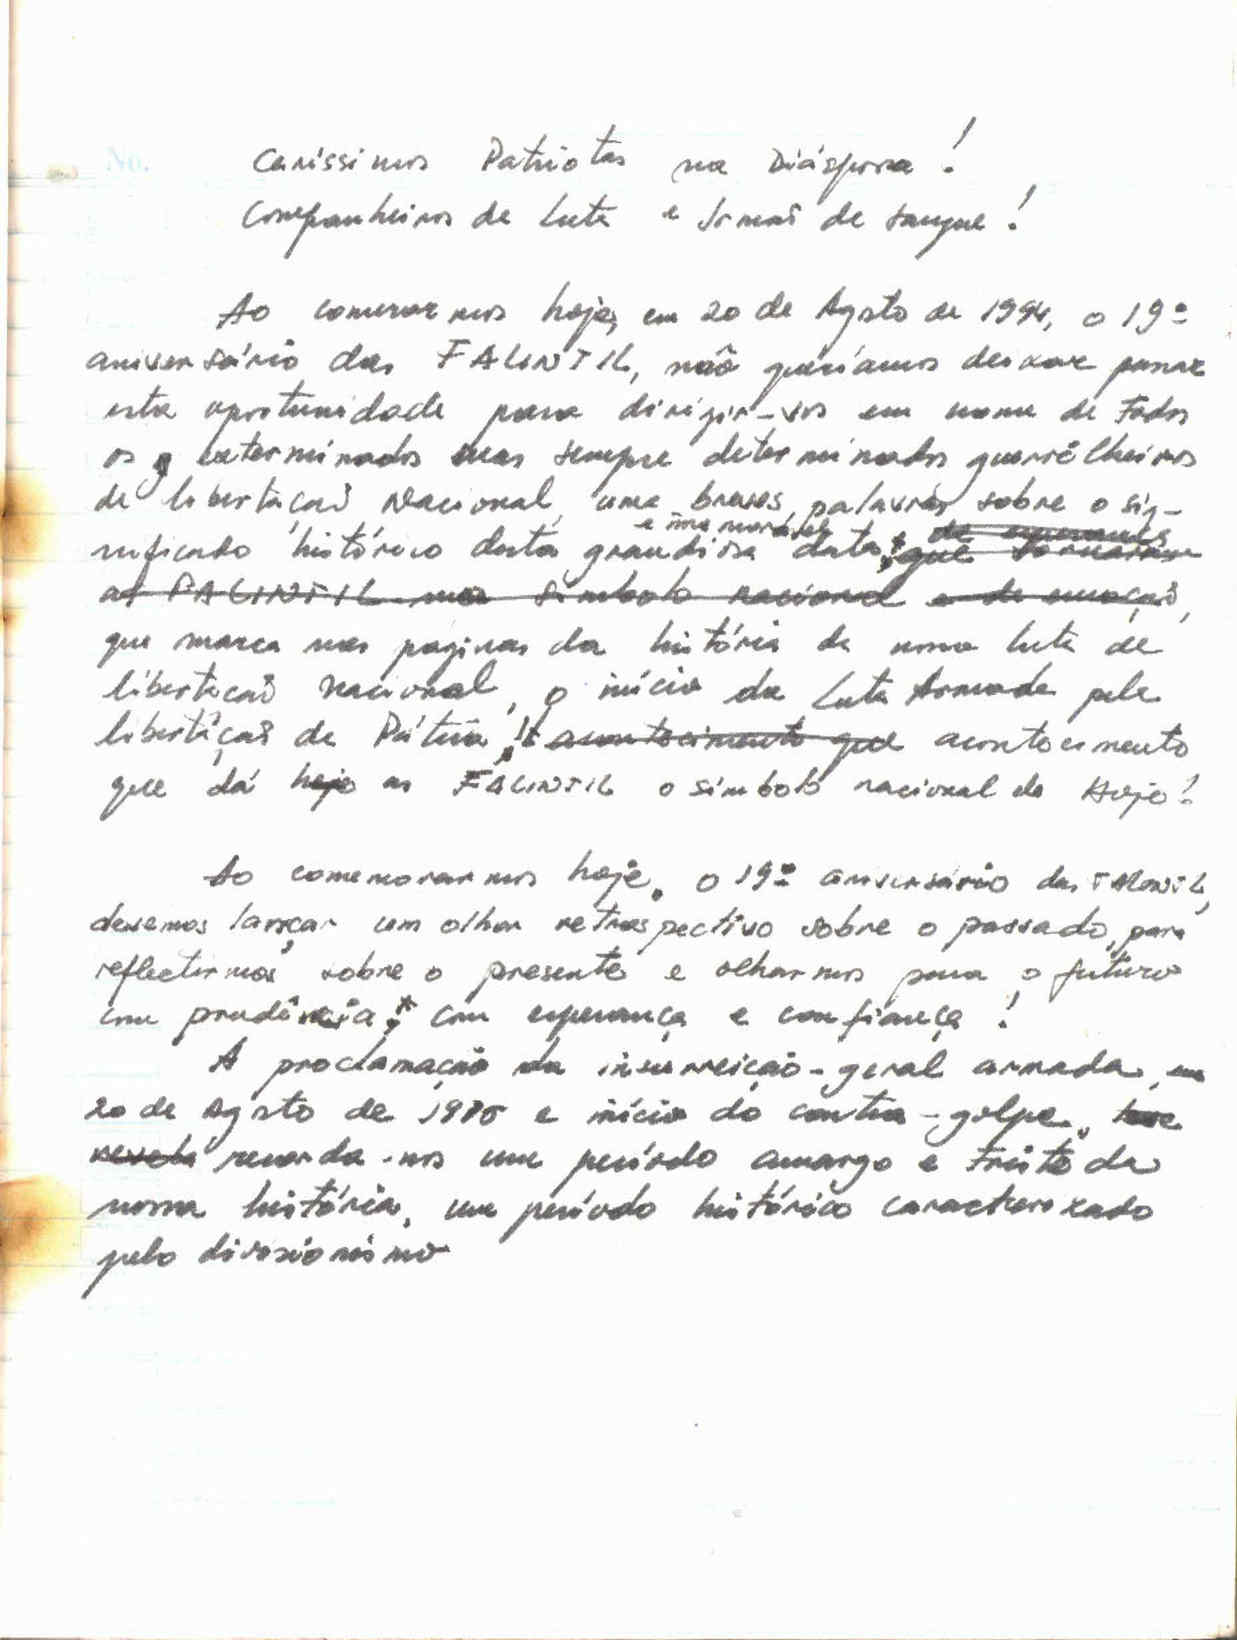 No.
Caríssimos Patriotas na Diáspora!
Companheiros de Luta e Irmãos de sangue!
Ao comemorarmos hoje, em 20 de Agosto de 1994, o 19º
aniversário das FALINTIL, não queríamos deixar passar
esta oportunidade para dirigir-vos em nome de todos
os exterminados mas sempre determinados guerrilheiros
de libertação Nacional, umas breves palavras sobre o sig-
e memorável de esperança
nificado histórico desta grandiosa data, que tornaram
as FALINTIL um símbolo nacional e de
que marca nas páginas da história da nossa luta de
libertação nacional, o início da Luta Armada pela
libertação da Pátria, acontecimento que acontecimento
que dá hoje as FALINTIL o símbolo nacional de Hoje!
Ao comemorarmos hoje, o 19º aniversário das FALINTIL,
devemos lançar um olhar retrospectivo sobre o passado, para
reflectirmos sobre o presente e olharmos para o futuro
com prudência, com esperança e confiança!
A proclamação da insurreição-geral armada, em
20 de Agosto de 1975 e início do contra-golpe,
revela recorda-nos um período amargo e triste da
nossa história, um período histórico caracterizado
pelo divisionismo